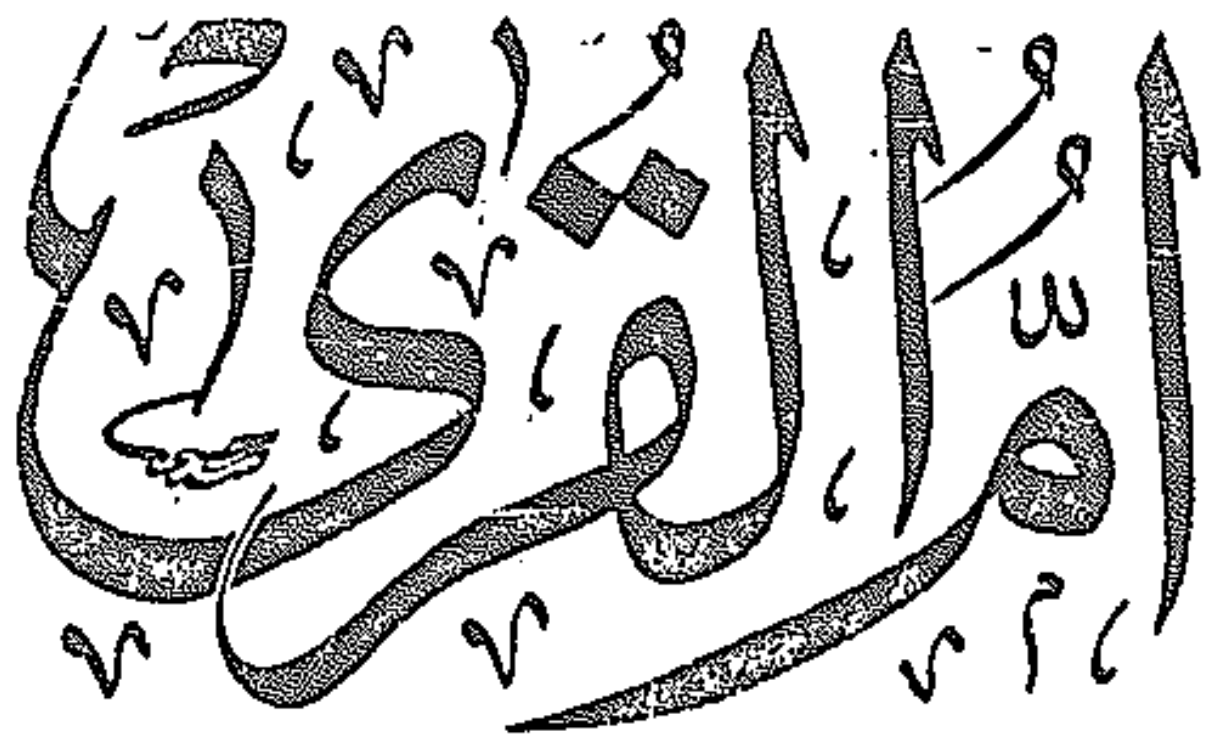 أُمُّ القُرىٰ